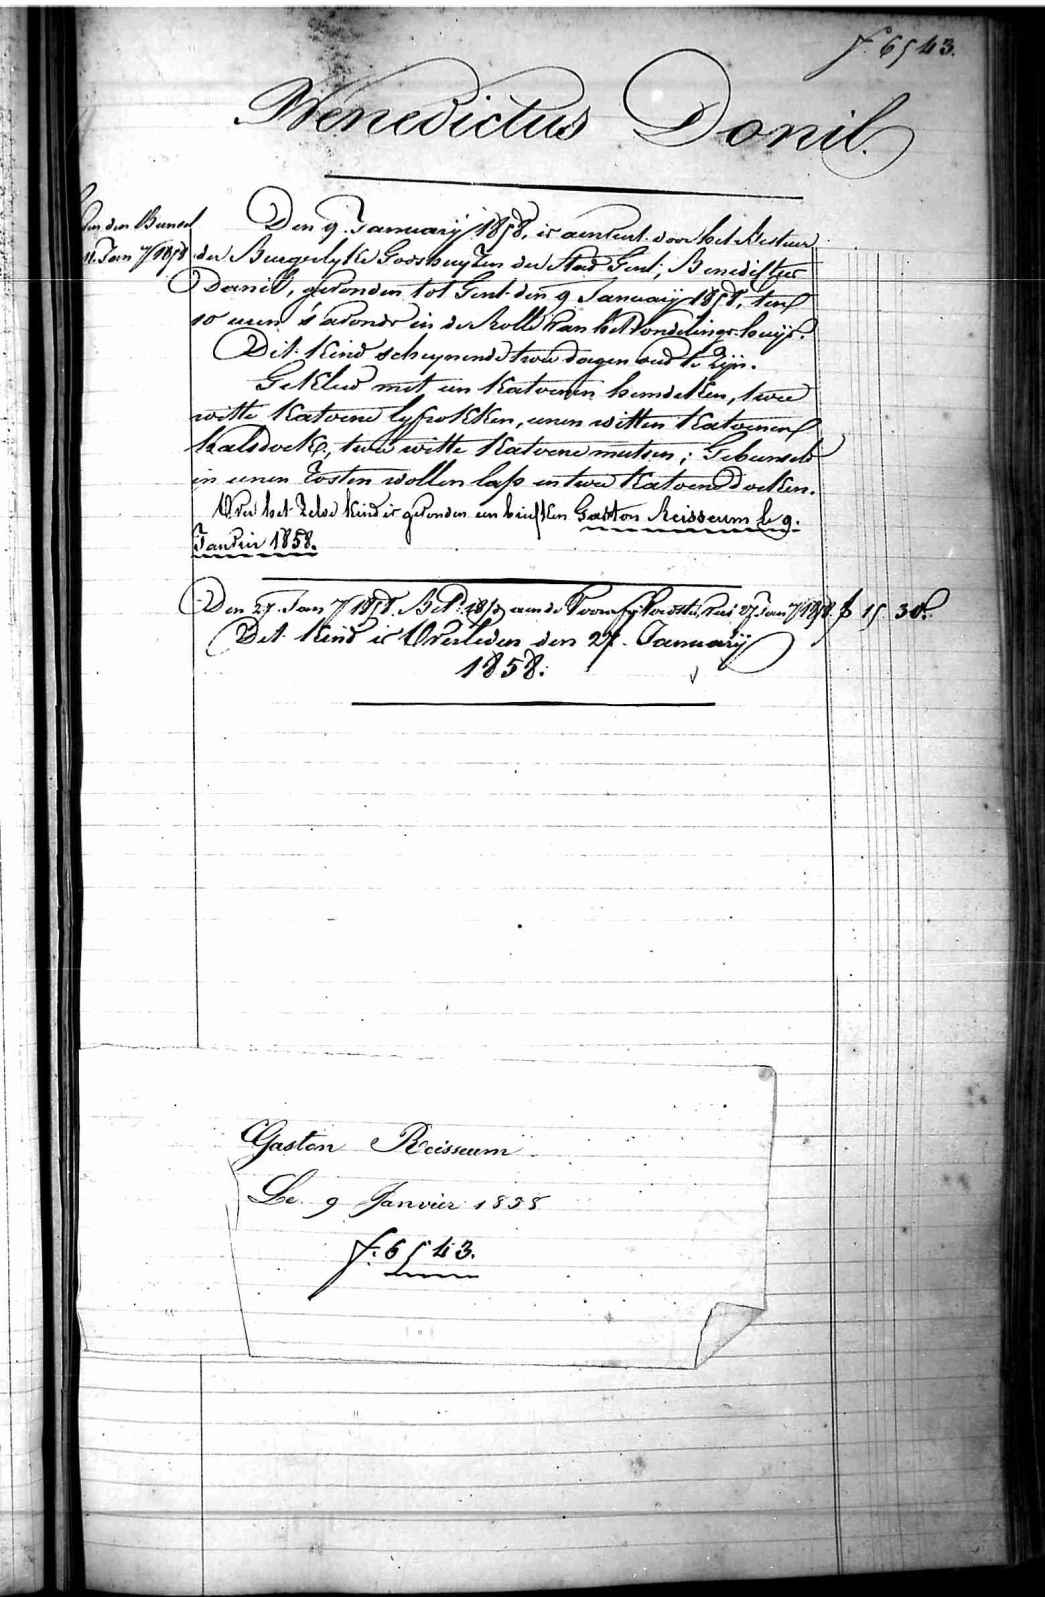 f. 6543.
Benedictus Donil.
Den 9. January 1858, is aenveert door het Bestuer
11. Jan.y 1858 der Burgerlyke Godshuyzen der Stad Gent; Benedictus
Donil, gevonden tot Gent den 9 January 1858, ten
10 uren s'avonds in de Rolle van het Vondelings-huys.
Dit Kind scheynende twee dagen oud te zijn.
Gekleed met een Katoenen hemdeken, twee
witte Katoene lyfrokken, eenen witten Katoenen
halsdoek, twee witte Katoene mutsen; Gebunseld
in eenen Rosten wollen lap en twee Katoene doeken.
Over het Zelve Kind is gevonden een briefken Gaston Reisseum le 9.
Janvier 1858.
Den 27. Jan.y 1858. Bet. aen de 27 Jan.y 1858. f 15. 30.
Dit Kind is Overleden den 27. January
1858.
Gaston Reisseum
Le 9 Janvier 1858
f. 6543.